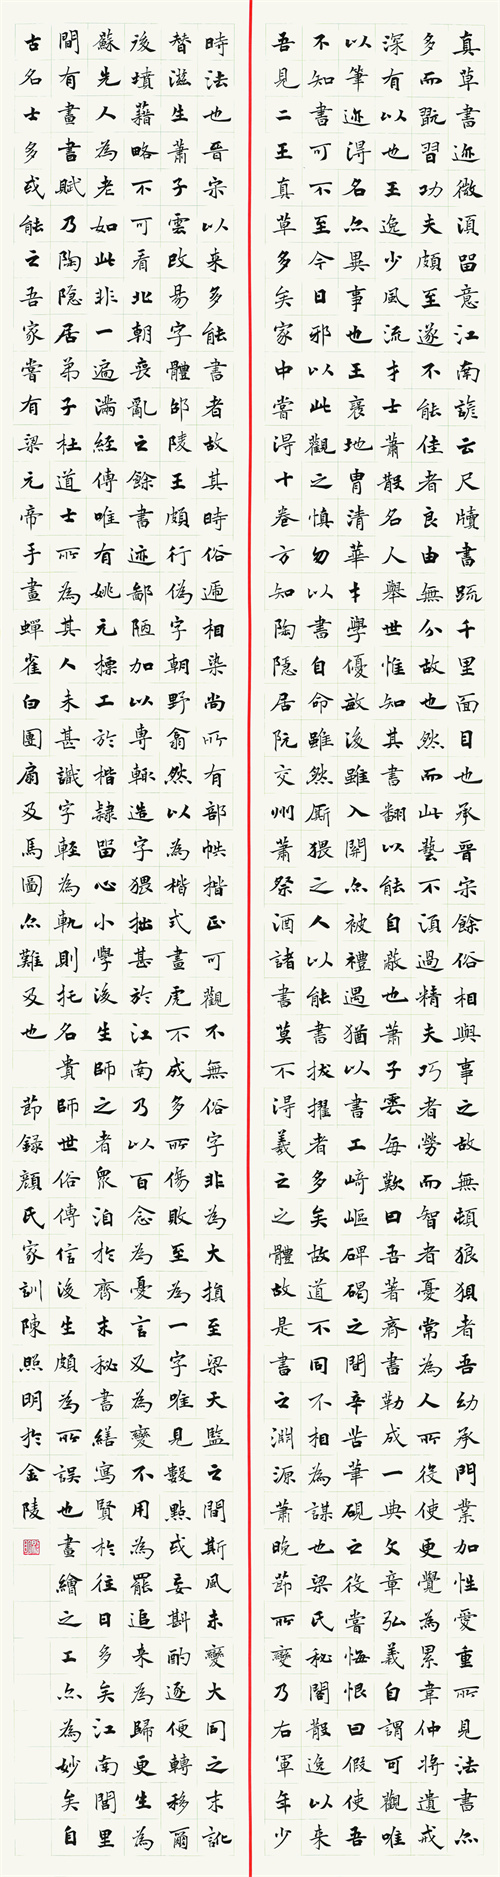 真草書迹微須留意江南諺云尺牘書疏千里面目也承晉宋餘俗相與事之故無頓狼狽者吾幼承門業加性愛重所見法書亦
多而翫習功夫頗至遂不能佳者良由無分故也然而此藝不須過精夫巧者勞而智者憂常為人所役使更覺為累韋仲將遺戒
深有以也王逸少風流才士蕭散名人舉世惟知其書翻以能自蔽也蕭子雲每歎曰吾著齊書勒成一典文章弘義自謂可觀唯
以筆迹得名亦異事也王褒地胄清華才學優敏後雖入關亦被禮遇猶以書工崎嶇碑碣之間辛苦筆硯之役嘗悔恨曰假使吾
不知書可不至今日邪以此觀之慎勿以書自命雖然廝猥之人以能書拔擢者多矣故道不同不相為謀也梁氏秘閣散逸以来
吾見二王真草多矣家中嘗得十卷方知陶隱居阮交州蕭祭酒諸書莫不得羲之之體故是書之淵源蕭晚節所變乃右軍年少
時法也晉宋以来多能書者故其時俗遞相染尚所有部帙楷正可觀不無俗字非為大損至梁天監之間斯風未變大同之末訛
替滋生蕭子雲改易字體邵陵王頗行偽字朝野翕然以為楷式畫虎不成多所傷敗至為一字唯見數點或妄斟酌逐便轉移爾
後墳籍略不可看北朝喪亂之餘書迹鄙陋加以專輒造字猥拙甚於江南乃以百念為憂言反為變不用為罷追来為歸更生為
蘇先人為老如此非一遍滿經傳唯有姚元標工於楷隸留心小學後生師之者衆洎於齊末秘書繕寫賢於往日多矣江南閭里
間有畫書賦乃陶隱居弟子杜道士所為其人未甚識字輕為軌則托名貴師世俗傳信後生頗為所誤也畫繪之工亦為妙矣自
古名士多或能之吾家嘗有梁元帝手畫蟬雀白團扇及馬圖亦難及也 節録顏氏家訓陳照明於金陵